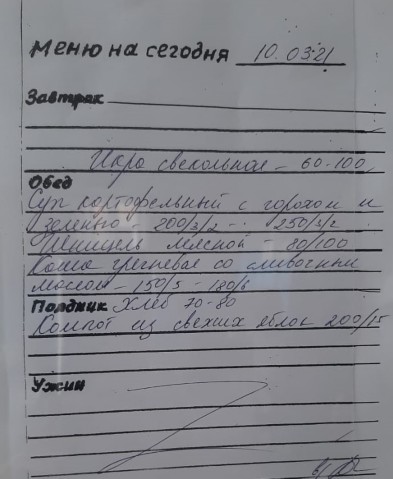 Меню на сегодня 10.03.21
Завтрак
Икра свекольная - 60-100
Обед
Суп картофельный с горохом и
зеленью - 200/3/2 - 250/3/2
Шницель мясной - 80/100
Каша гречневая со сливочным
маслом - 150/5 - 180/6
Полдник Хлеб 70-80
Компот из свежих яблок 200/15
Ужин